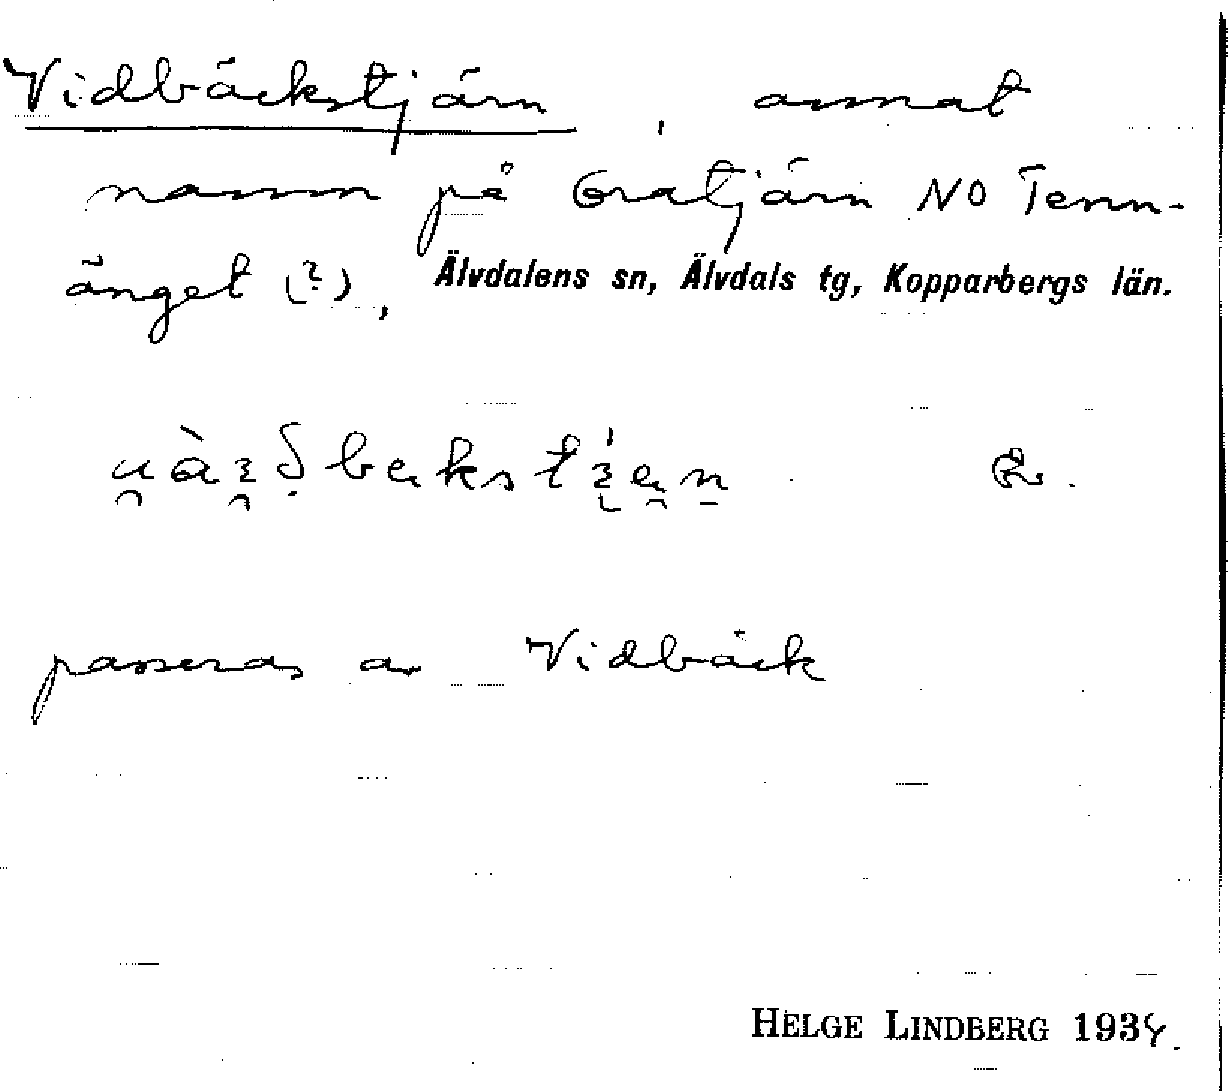 Vidbäckstjärn, annat
namn på Gratjärn NO Tenn-
änget (?), Älvdalens sn, Älvdals tg, Kopparbergs län.
passeras av Vidbäck
HELGE LINDBERG 1934.